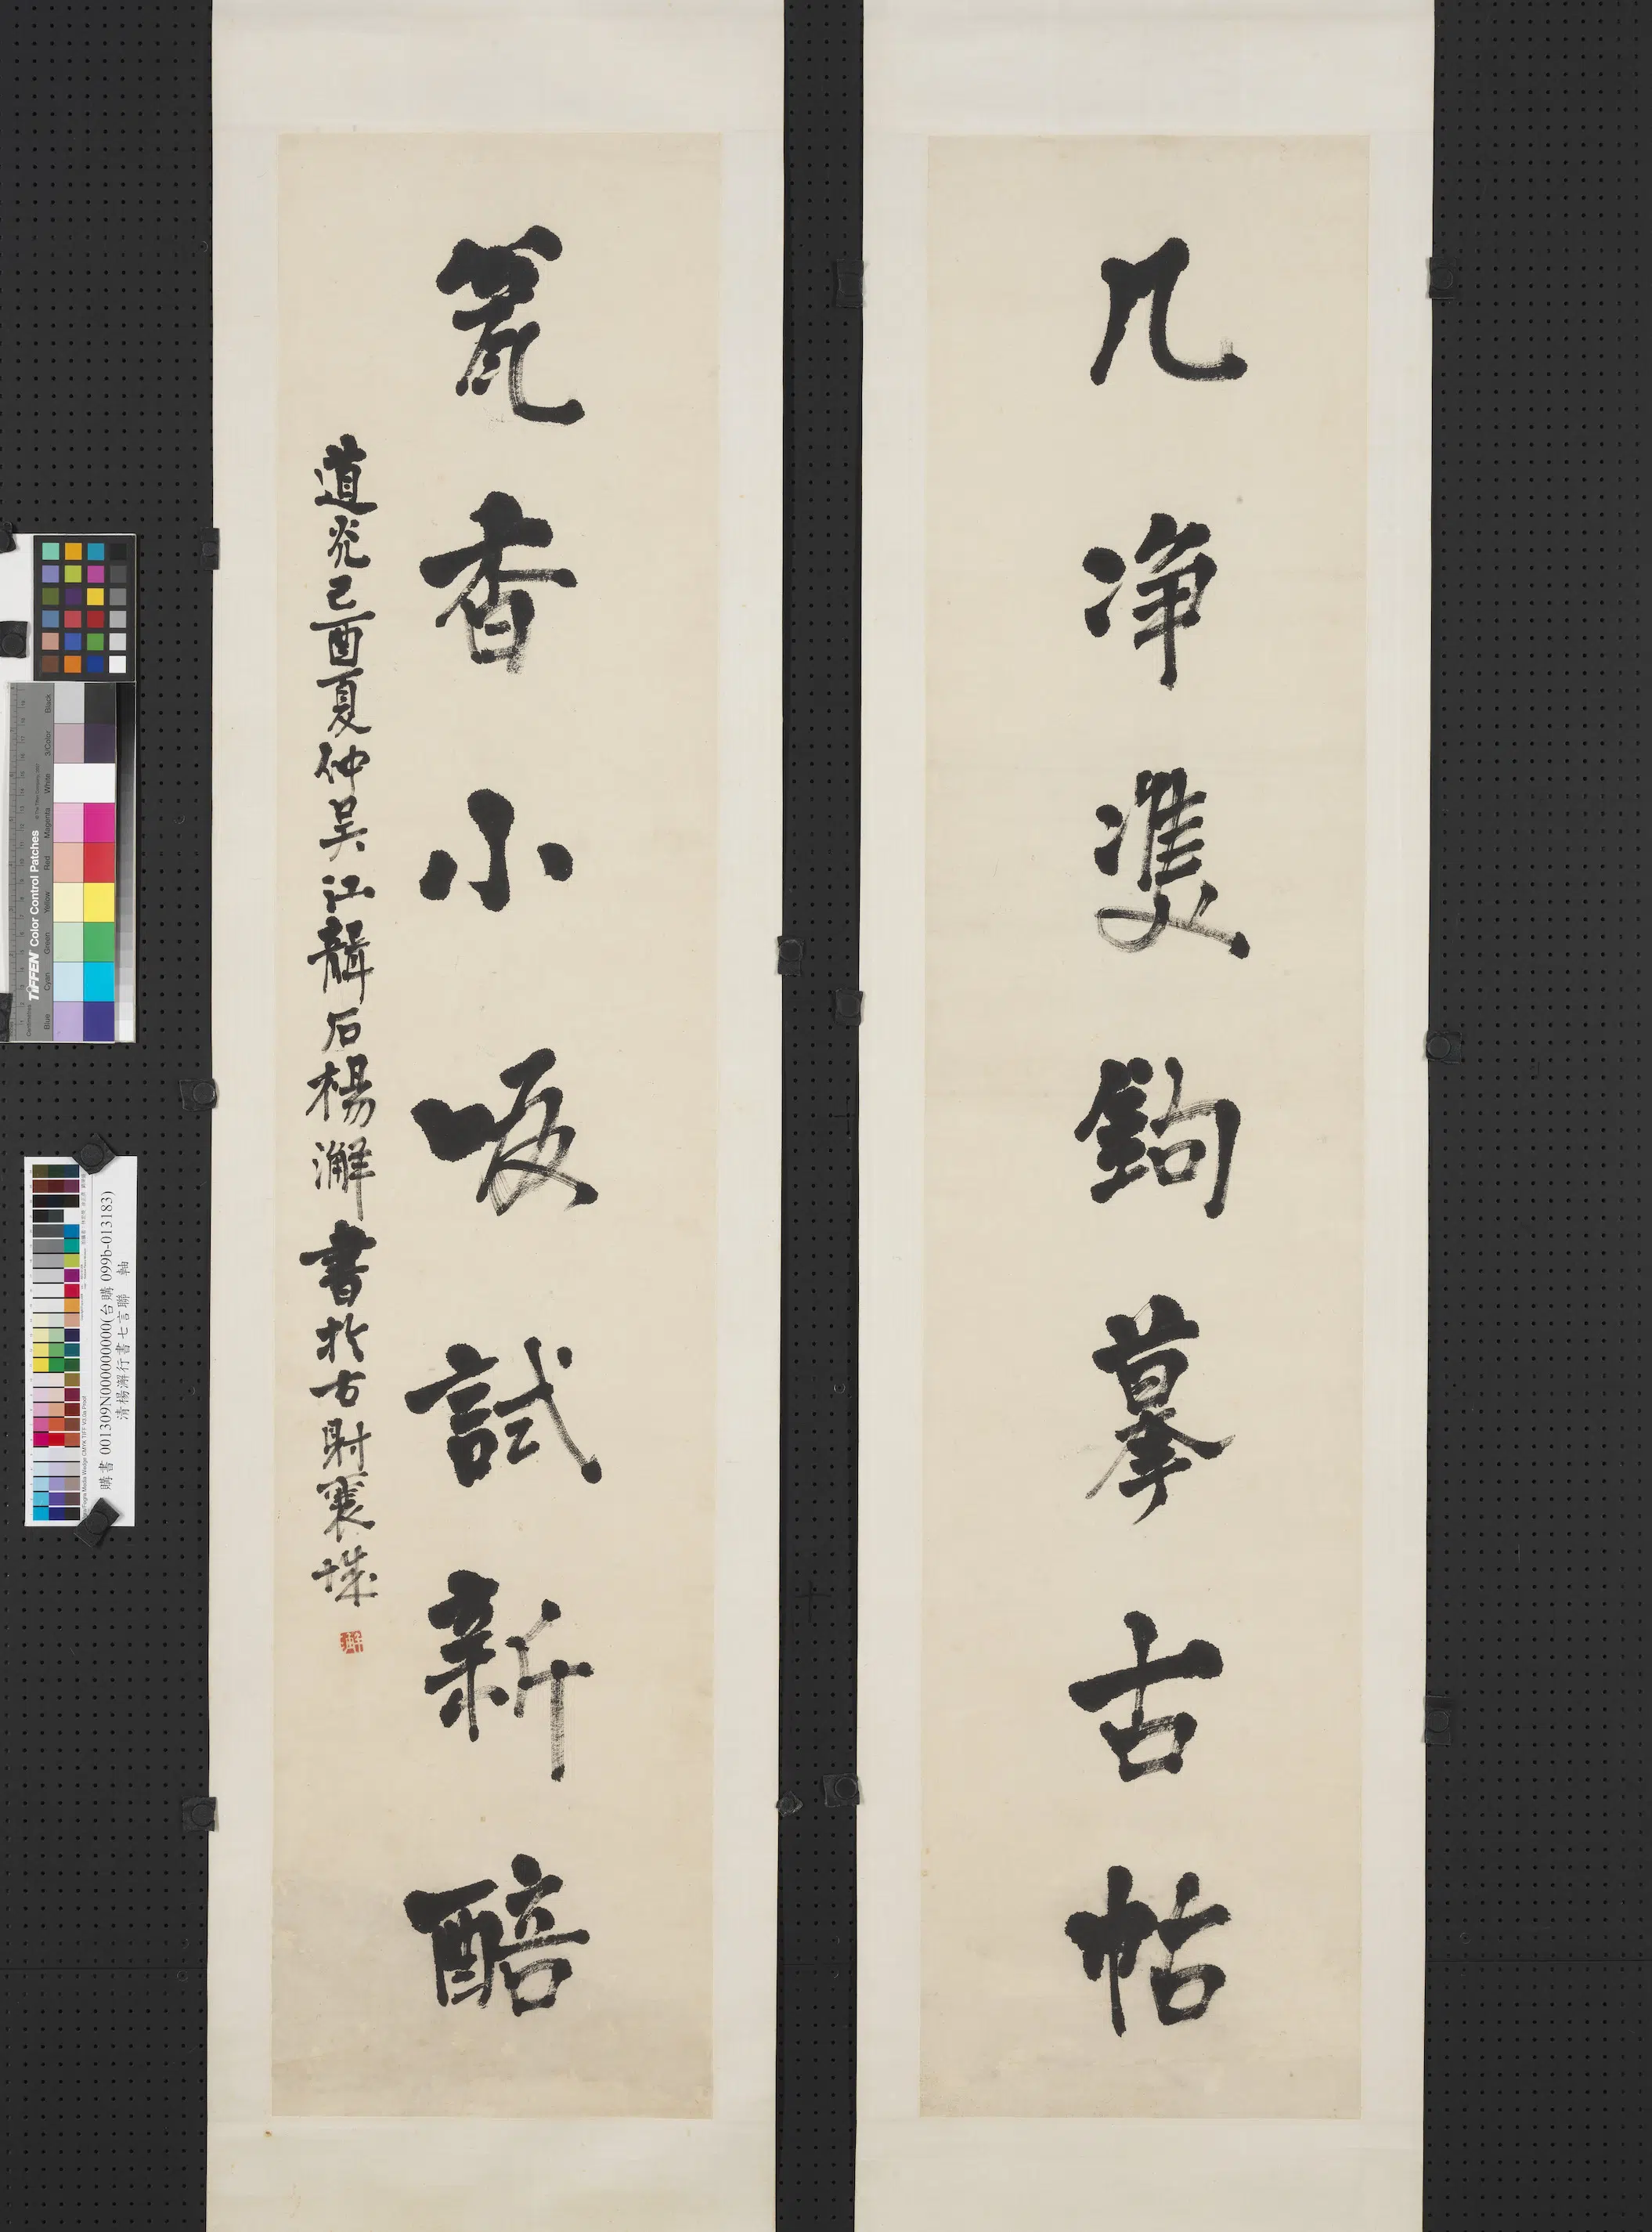 几净雙鉤摹古帖
瓮香小啜試新醅
道光己酉夏仲吳江聾石楊澥書於古射襄城
TIFFEN Color Control Patches
Blue Cyan Green Yellow Red Magenta White 3/Color Black
購書 001309N000000000(台購 099b-013183)
清楊澥行書七言聯 軸